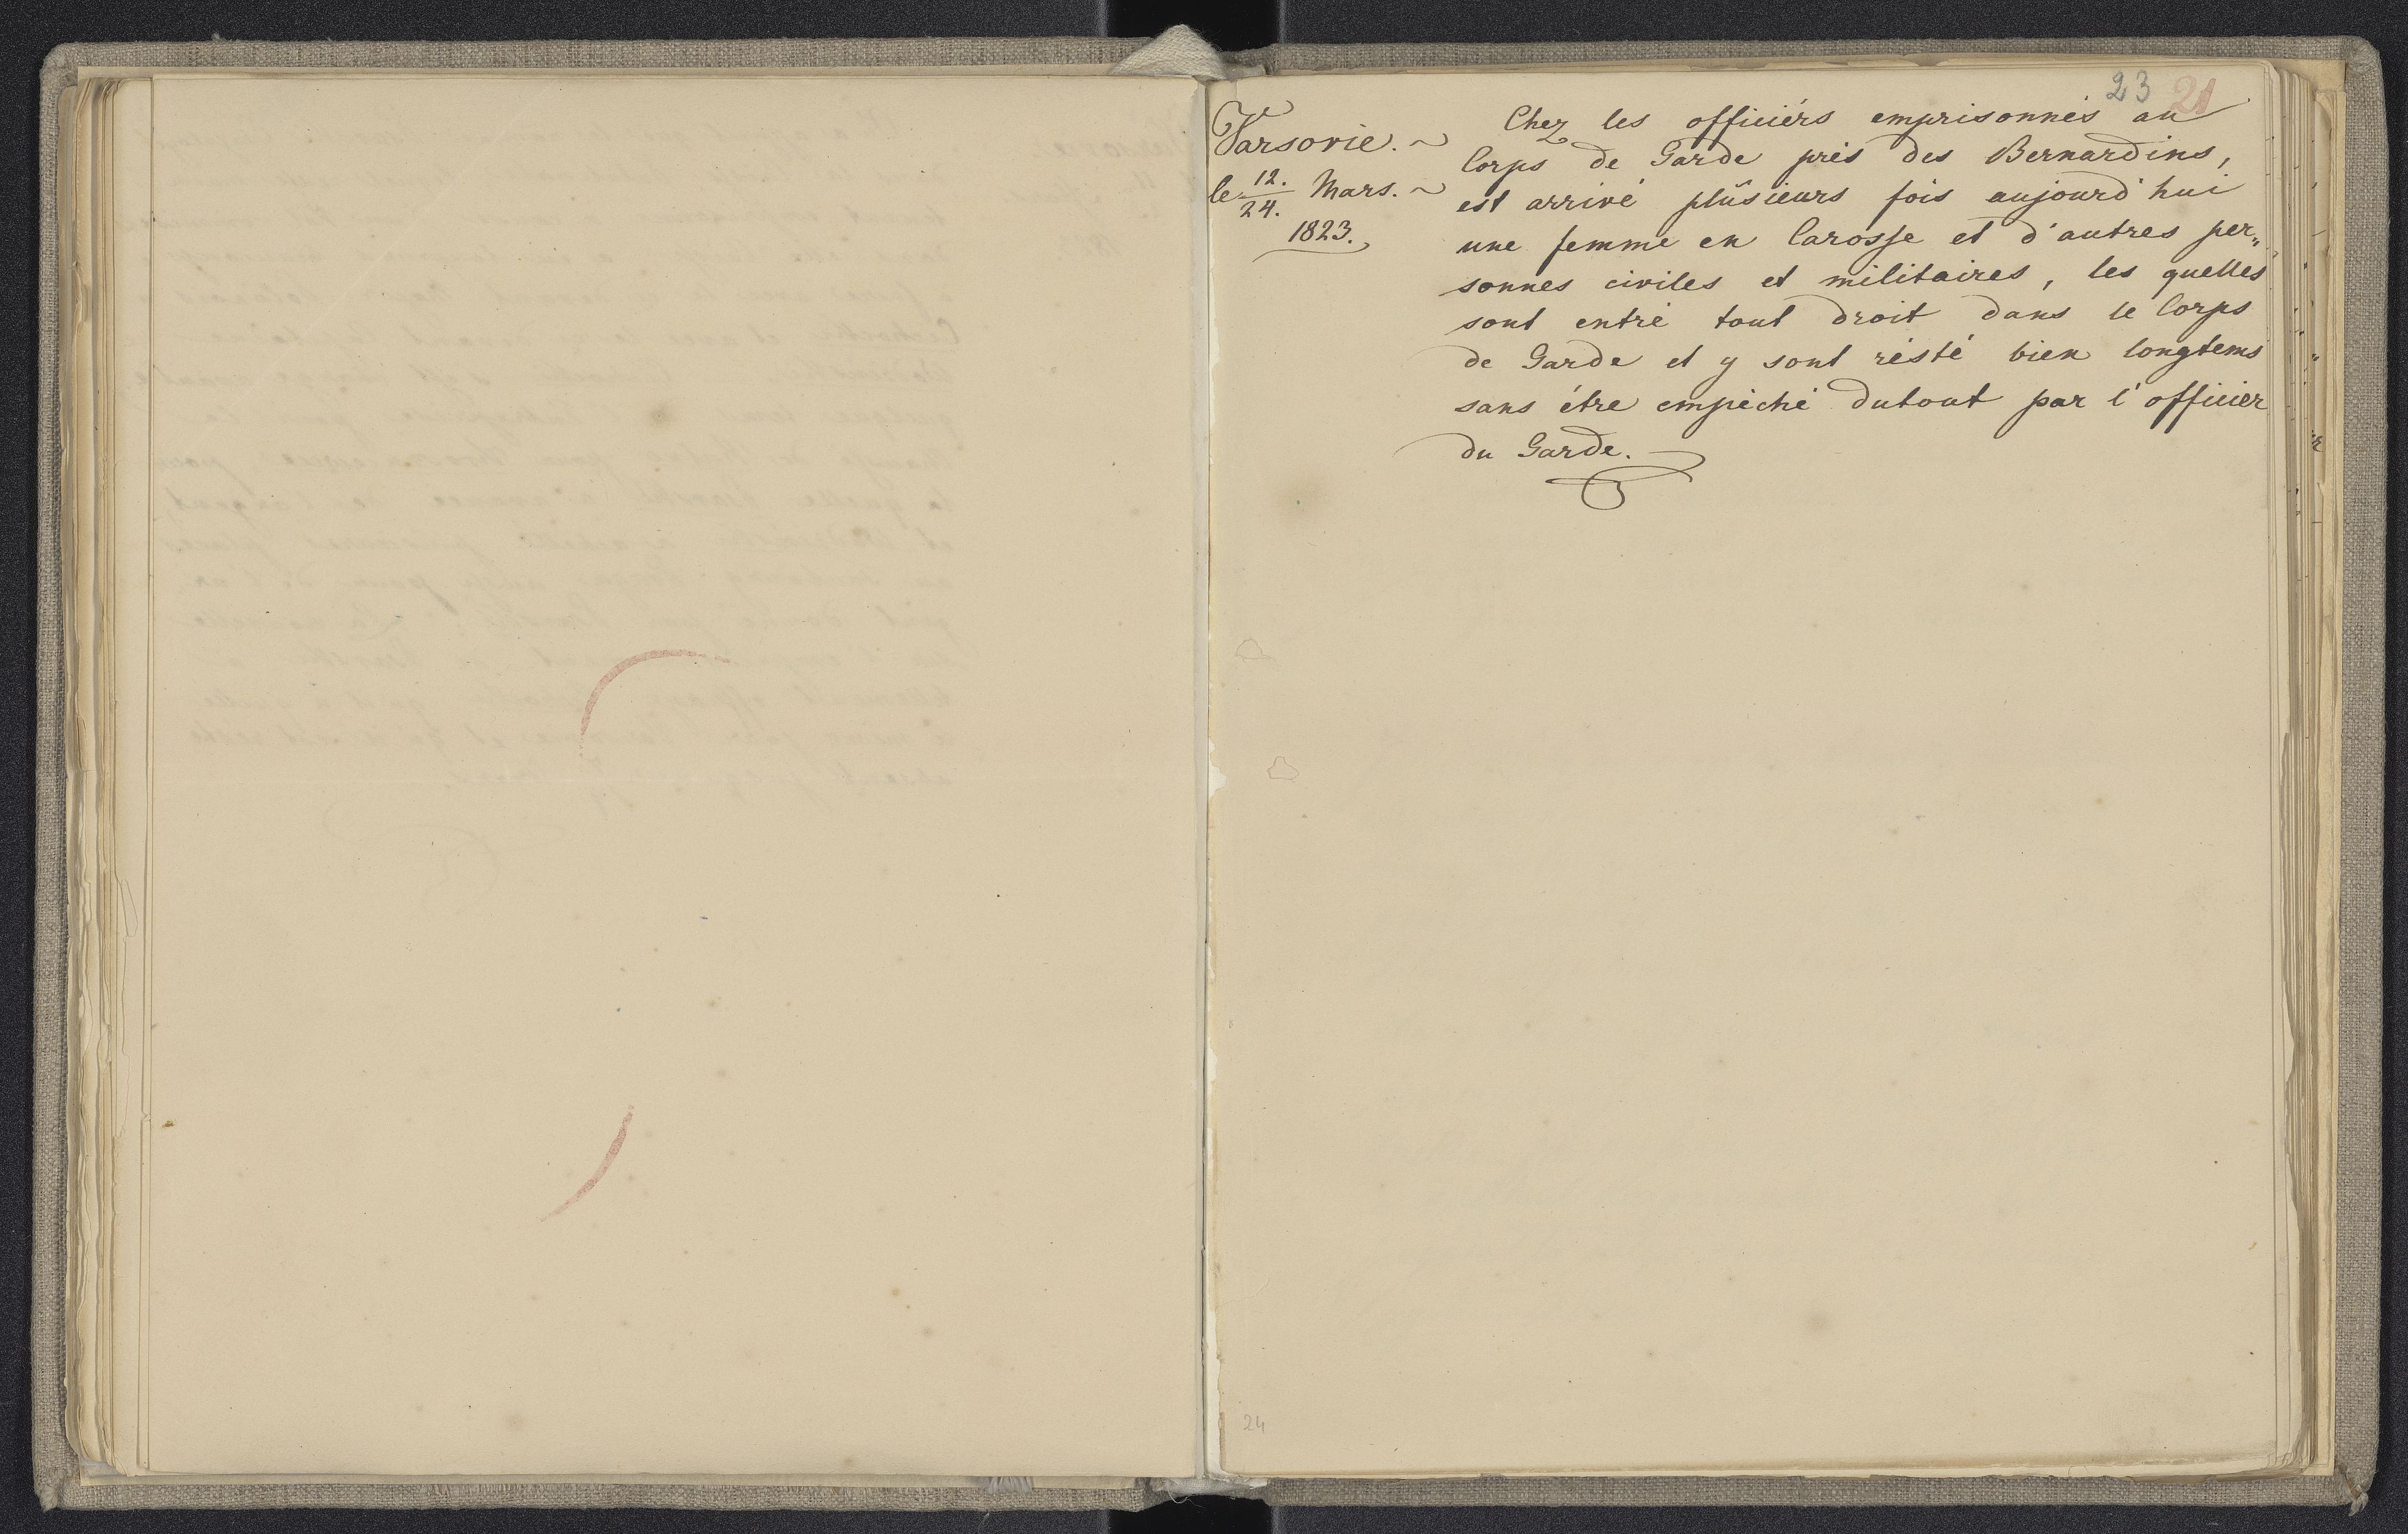 23 21
Varsovie. ~
le 12./24. Mars. ~
1823.
Chez les officiérs emprisonnés au
Corps de Garde prés des Bernardins,
est arrivé plûsieurs fois aujourd'hui
une femme en Carosse et d'autres per„
sonnes civiles et militaires, les quelles
sont entré tout droit dans le Corps
de Garde et y sont résté bien longtems
sans être empéché dutout par l'officier
du Garde.
24